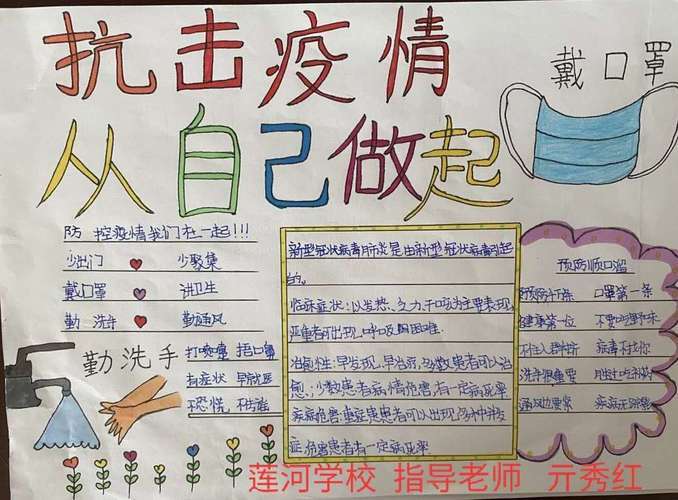 抗击疫情
从自己做起
戴口罩
防控疫情我们在一起!!!
少出门 少聚集
戴口罩 讲卫生
勤洗手 勤通风
勤洗手
打喷嚏 捂口鼻
有症状 早就医
不恐慌 不传谣
新型冠状病毒肺炎是由新型冠状病毒引起
的。
临床症状:以发热、乏力、干咳为主要表现,
严重者可出现呼吸困难.
治愈性:早发现、早治疗,多数患者可以治
愈,少数患者病情危害,有一定病死率
疾病危害:重症患者可以出现多种并发
症,危害患者有一定病死率
预防顺口溜
口罩第一条
健康第一位 不要吃野味
病毒不找你
洗手很重要
莲河学校 指导老师 亓秀红